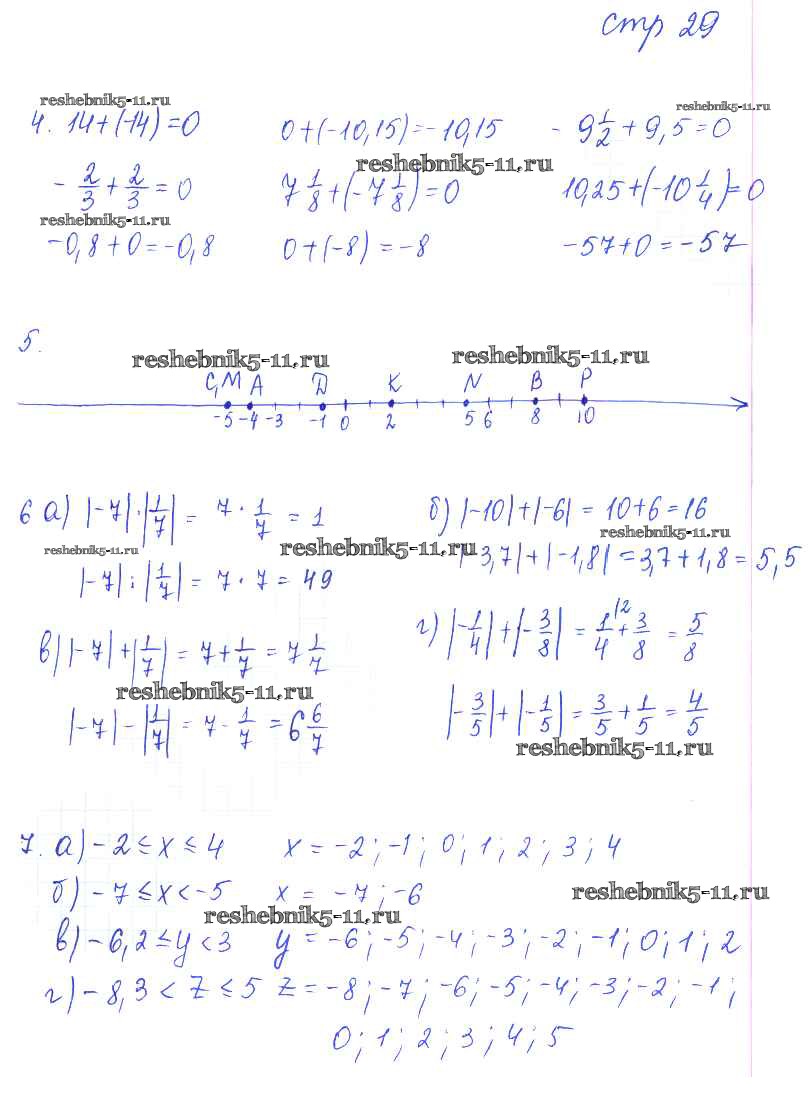 стр 29
reshebnik5-11.ru
reshebnik5-11.ru
4. 14+(-14)=0 0+(-10,15)=-10,15 -9 1/2 + 9,5=0
reshebnik5-11.ru
- 2/3 + 2/3 = 0 7 1/8 + (-7 1/8) = 0 10,25+(-10 1/4)=0
reshebnik5-11.ru
-0,8+0=-0,8 0+(-8)=-8 -57+0=-57
5.
reshebnik5-11.ru reshebnik5-11.ru
C,M A D K N B P
-5 -4 -3 -1 0 2 5 6 8 10
6 а) |-7|·|1/7| = 7 · 1/7 = 1 б) |-10|+|-6| = 10+6=16
reshebnik5-11.ru
reshebnik5-11.ru reshebnik5-11.ru
|-7| : |1/7| = 7 · 7 = 49 3,7|+|-1,8|=3,7+1,8=5,5
в) |-7|+|1/7| = 7+1/7 = 7 1/7 г) |-1/4|+|-3/8| = 1/4 |2 + 3/8 = 5/8
reshebnik5-11.ru
|-7|-|1/7| = 7 - 1/7 = 6 6/7 |-3/5|+|-1/5| = 3/5 + 1/5 = 4/5
reshebnik5-11.ru
7. а) -2 ≤ x ≤ 4 x = -2; -1; 0; 1; 2; 3; 4
б) -7 ≤ x < -5 x = -7; -6
reshebnik5-11.ru
reshebnik5-11.ru
в) -6,2 ≤ y < 3 y = -6; -5; -4; -3; -2; -1; 0; 1; 2
г) -8,3 < z ≤ 5 z = -8; -7; -6; -5; -4; -3; -2; -1;
0; 1; 2; 3; 4; 5